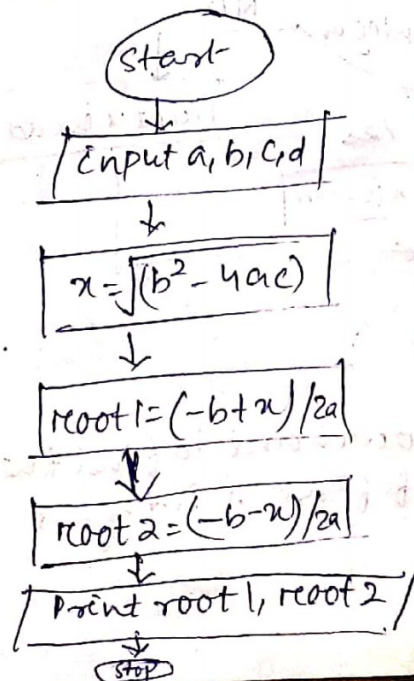 Start
input a, b, c, d
x = √(b² - 4ac)
root 1 = (-b+x)/2a
root 2 = (-b-x)/2a
Print root 1, root 2
Stop